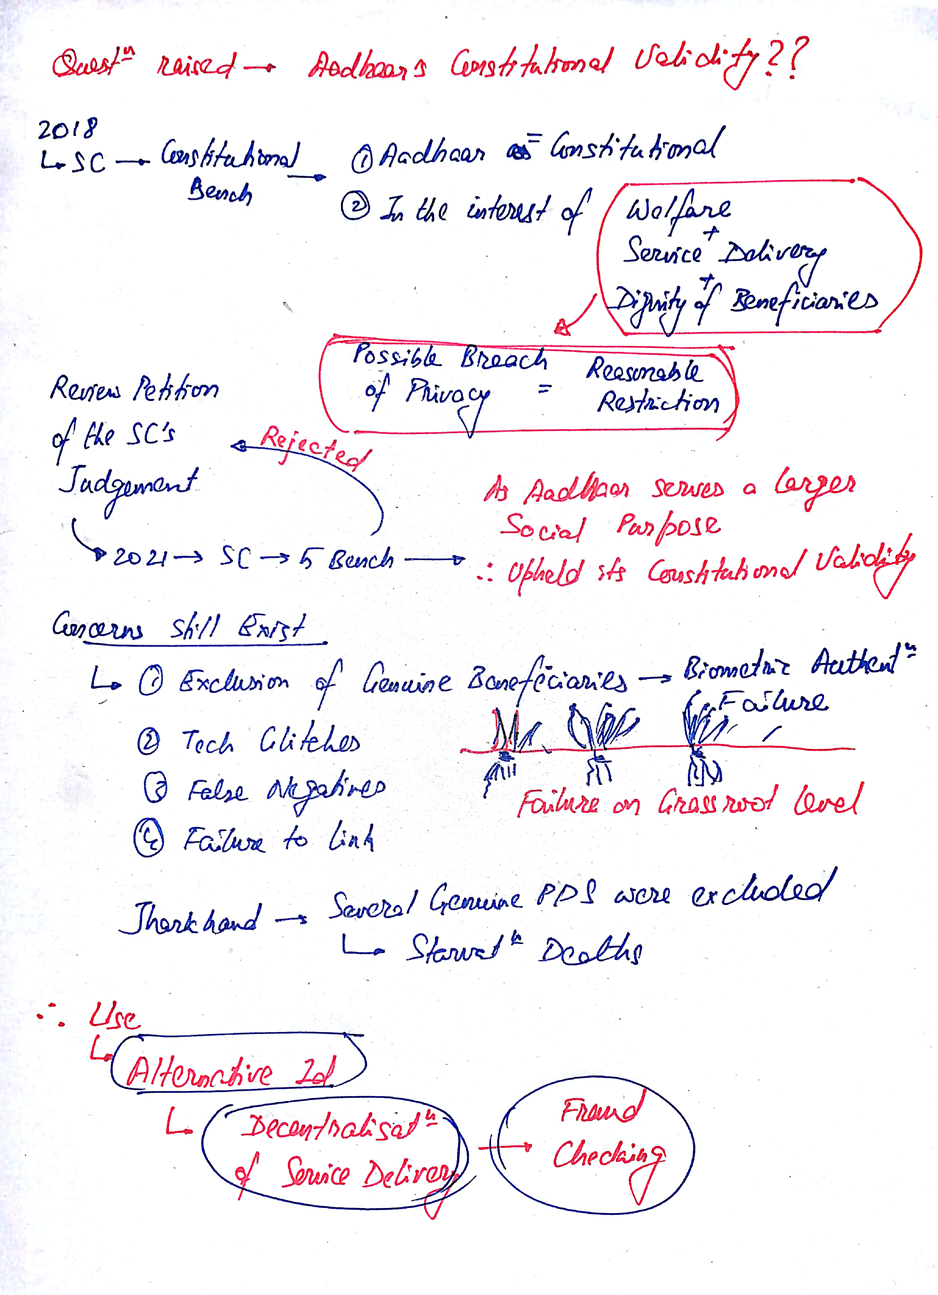 Questⁿ raised → Aadhaar's Constitutional Validity??
2018
↳ SC → Constitutional Bench →
① Aadhaar = Constitutional
② In the interest of
Welfare
+
Service Delivery
+
Dignity of Beneficiaries
Possible Breach of Privacy = Reasonable Restriction
Review Petition
of the SC's
Judgement
Rejected
2021 → SC → 5 Bench →
As Aadhaar serves a larger
Social Purpose
∴ Upheld its Constitutional Validity
Concerns Still Exist
↳ ① Exclusion of Genuine Beneficiaries → Biometric Authentⁿ
Failure
② Tech Glitches
③ False Negatives
④ Failure to link
Failure on Grassroot level
Jharkhand → Several Genuine PDS were excluded
↳ Starvatⁿ Deaths
∴ Use
↳ Alternative Id
↳ Decentralisatⁿ
of Service Delivery
→ Fraud
Checking